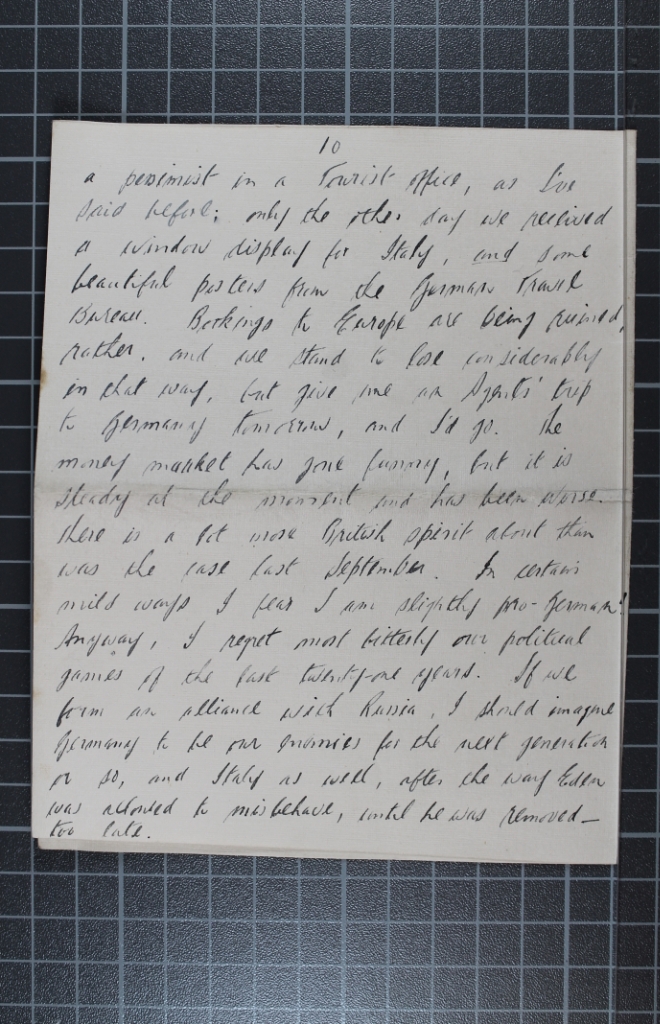 10
a pessimist in a Tourist office, as I've
said before; only the other day we received
a window display for Italy, and some
beautiful posters from the German Travel
Bureau. Bookings to Europe are being ruined,
rather. and we stand to lose considerably
in that way, but give me an Agents' trip
to Germany tomorrow, and I'd go. The
money market has gone funny, but it is
steady at the moment and has been worse.
There is a lot more British spirit about than
was the case last September. In certain
mild ways I fear I am slightly pro-German!
Anyway, I regret most bitterly our political
games of the last twenty-one years. If we
form an alliance with Russia, I should imagine
Germany to be our enemies for the next generation
or so, and Italy as well, after the way Eden
was allowed to misbehave, until he was removed —
too late.